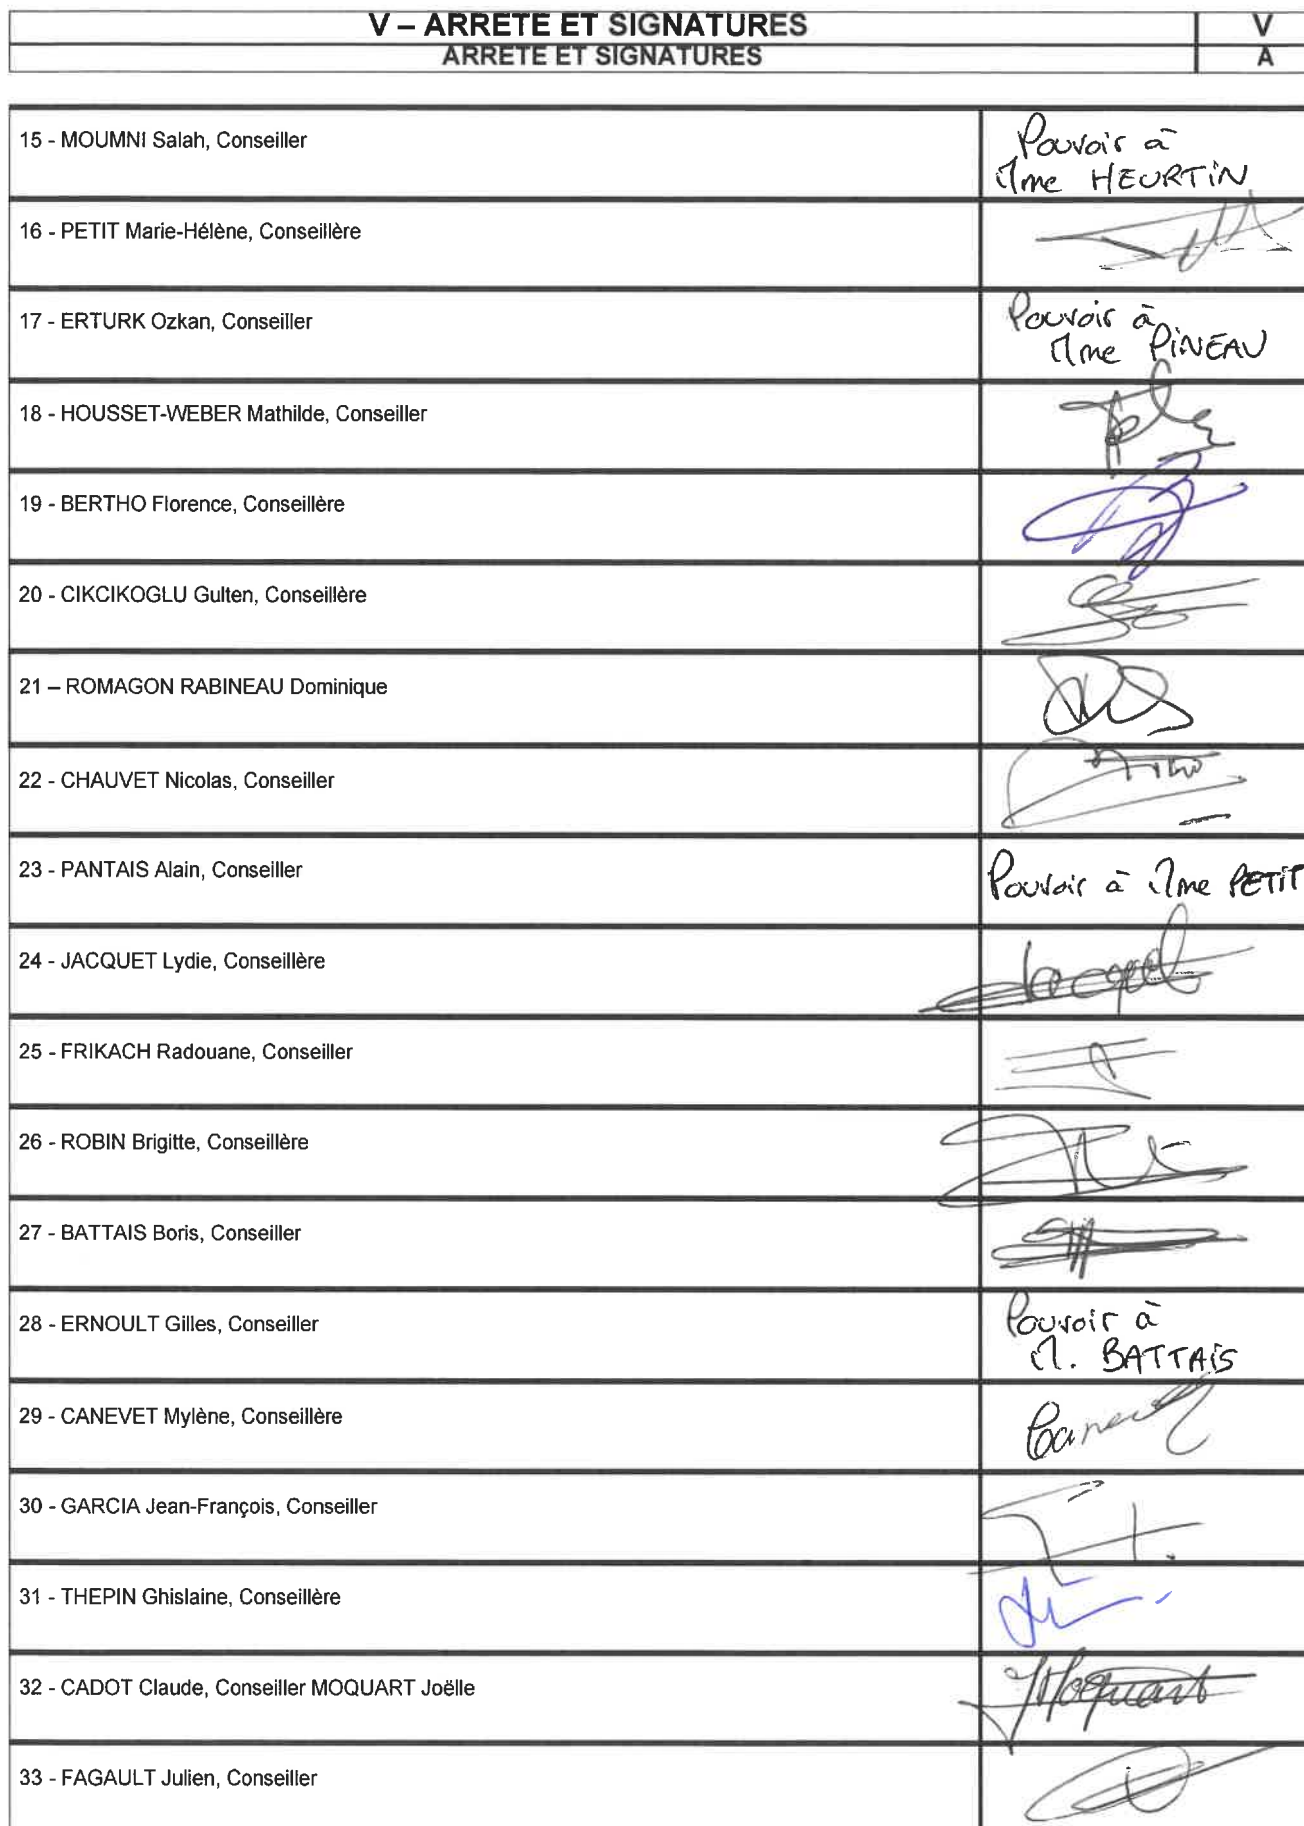 V – ARRETE ET SIGNATURES V
ARRETE ET SIGNATURES A
15 - MOUMNI Salah, Conseiller
Pouvoir à
Mme HEURTIN
16 - PETIT Marie-Hélène, Conseillère
17 - ERTURK Ozkan, Conseiller
Pouvoir à
Mme PINEAU
18 - HOUSSET-WEBER Mathilde, Conseiller
19 - BERTHO Florence, Conseillère
20 - CIKCIKOGLU Gulten, Conseillère
21 – ROMAGON RABINEAU Dominique
22 - CHAUVET Nicolas, Conseiller
23 - PANTAIS Alain, Conseiller
Pouvoir à Mme PETIT
24 - JACQUET Lydie, Conseillère
Jacquet
25 - FRIKACH Radouane, Conseiller
26 - ROBIN Brigitte, Conseillère
27 - BATTAIS Boris, Conseiller
28 - ERNOULT Gilles, Conseiller
Pouvoir à
M. BATTAIS
29 - CANEVET Mylène, Conseillère
30 - GARCIA Jean-François, Conseiller
31 - THEPIN Ghislaine, Conseillère
32 - CADOT Claude, Conseiller MOQUART Joëlle
JMoquart
33 - FAGAULT Julien, Conseiller